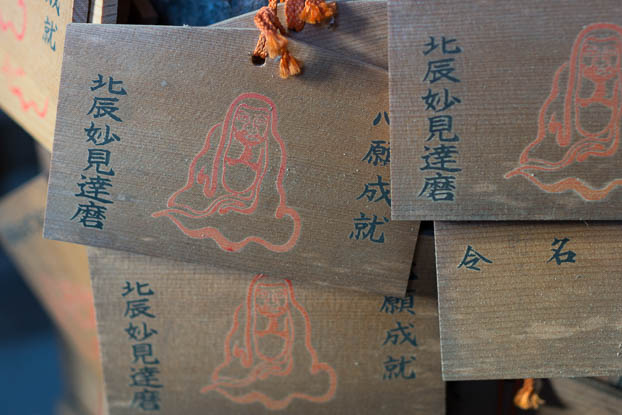 北辰妙見達磨
心願成就
北辰妙見達磨
北辰妙見達磨
願成就
令 名
成就